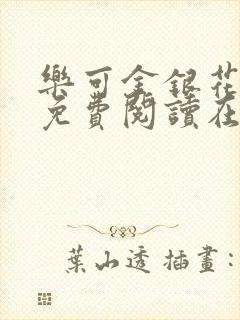 樂可金銀花
免費閱讀在
葉山透 插畫：